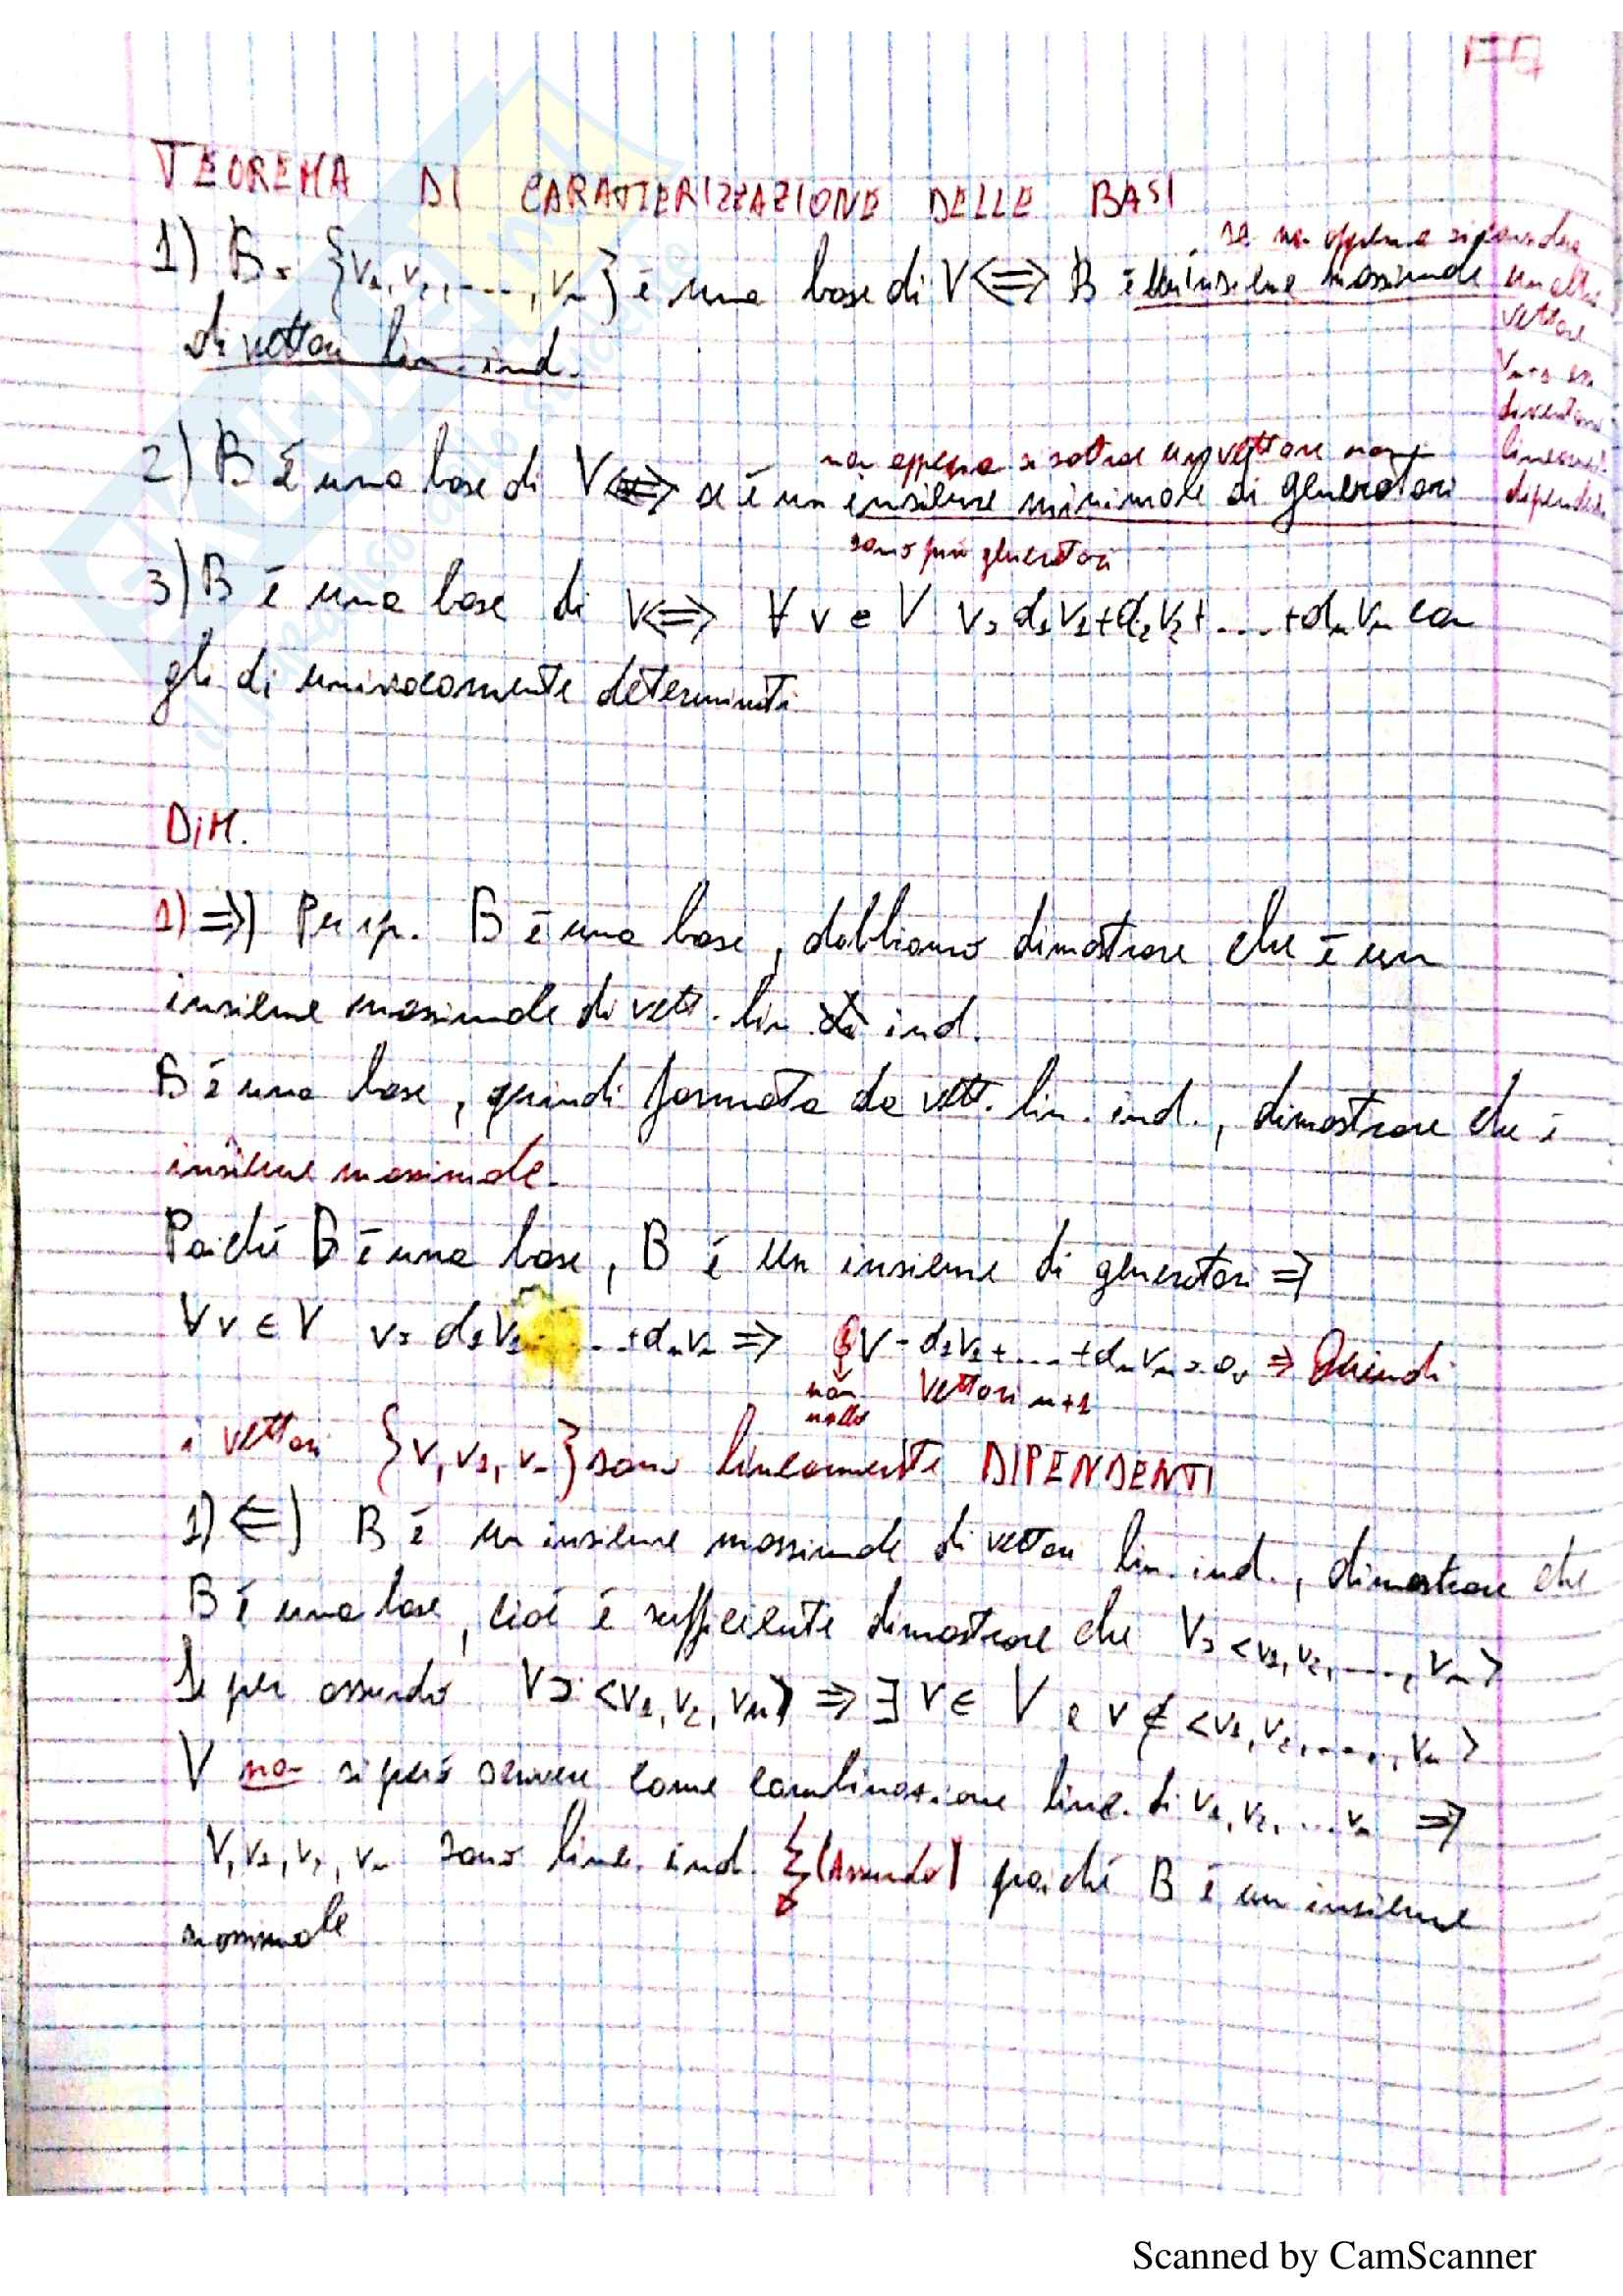 TEOREMA DI CARATTERIZZAZIONE DELLE BASI
se non appena si prende un altro vettore vn+1 diventano linearm. dipendenti
1) B = {v1, v2, ...., vn} è una base di V <=> B è un insieme massimale
di vettori lin. ind.
non appena si sottrae un vettore non
2) B è una base di V <=> se è un insieme minimale di generatori
sono più generatori
3) B è una base di V <=> ∀ v ∈ V v = α1v1+α2v2+....+αnvn con
gli αi univocamente determinati
DIM.
1) =>) Per ip. B è una base, dobbiamo dimostrare che è un
insieme massimale di vett. lin. ind.
B è una base, quindi formata da vett. lin. ind., dimostrare che è
insieme massimale.
Poiché B è una base, B è un insieme di generatori =>
∀ v ∈ V v = α1v1+....+αnvn => v - α1v1+....+αnvn = 0v => Quindi
non nullo vettori n+1
i vettori {v, v1, vn} sono linearmente DIPENDENTI
1) <=) B è un insieme massimale di vettori lin. ind., dimostrare che
B è una base, cioè è sufficiente dimostrare che V = <v1, v2, ...., vn>
Se per assurdo V ⊃ <v1, v2, vn> => ∃ v ∈ V e v ∉ <v1, v2, ...., vn>
V non si può scrivere come combinazione line. di v1, v2, ... vn =>
v, v1, v2, vn sono line. ind. (Assurdo) poiché B è un insieme
massimale
Scanned by CamScanner